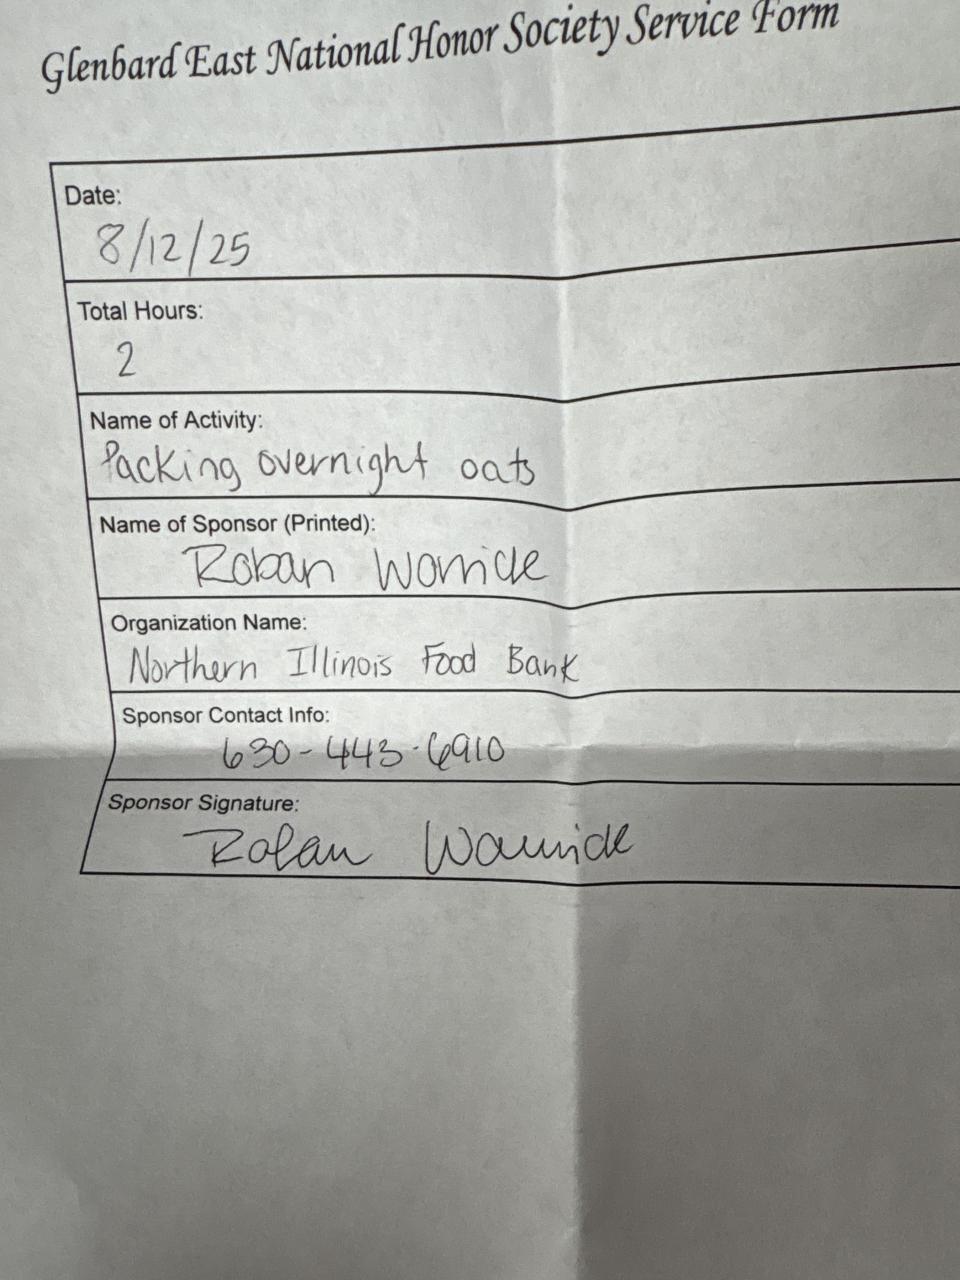 Glenbard East National Honor Society Service Form
Date:
8/12/25
Total Hours:
2
Name of Activity:
Packing overnight oats
Name of Sponsor (Printed):
Roban
Organization Name:
Northern Illinois Food Bank
Sponsor Contact Info:
630-443-6910
Sponsor Signature: